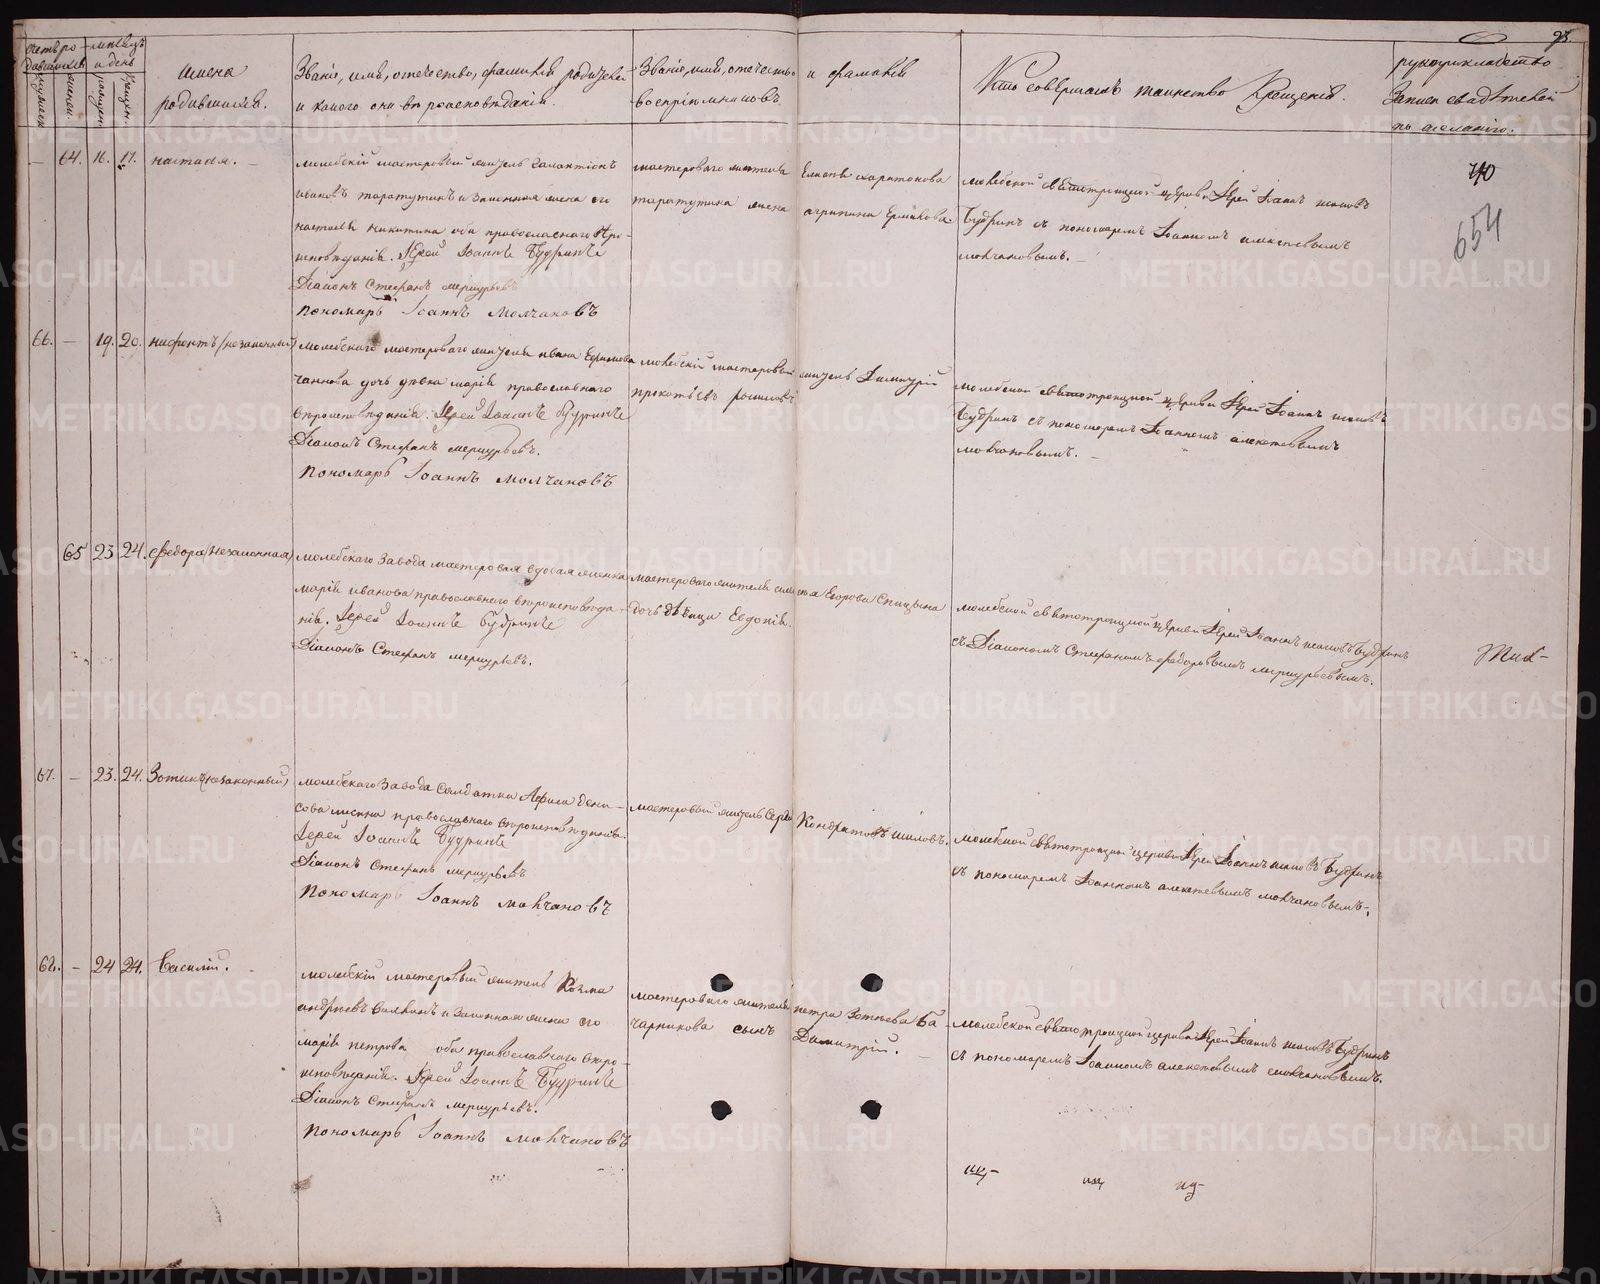 93.
Счетъ ро- мѣсяцъ
дившихся. и день
мужеска женска рожденія крещенія.
Имена
родившихся.
Званіе, имя, отечество, фамилія родителей
и какого они вѣроисповѣданія.
Званіе, имя, отечество и фамилія
воспріемниковъ.
Кто совершалъ таинство Крещенія.
рукоприкладство
Записи свидѣтелей
по желанію.
64. 16. 17. настасья.
молебскій мастеровый житель Галактіонъ
ивановъ таратутинъ и Законная жена его
настасья никитина оба православнаго вѣро-
исповѣданія. Іерей Іоаннъ Будринъ
Діаконъ Стефанъ меркурьевъ
Пономарь Іоаннъ Молчановъ
мастероваго жителя Елисея харитонова
таратутина жена агрипина Ермакова
молебской святотроицкой церкви Іерей Іоаннъ исаковъ
Будринъ съ пономаремъ Іоанномъ алексѣевымъ
молчановымъ.
740
654
66. 19. 20. нифонтъ (незаконный)
молебскаго мастероваго жителя ивана Ефимова
дочь дѣвка марія православнаго
вѣроисповѣданія. Іерей Іоаннъ Будринъ
Діаконъ Стефанъ меркурьевъ.
Пономарь Іоаннъ молчановъ
молебскій мастеровый житель Димитрій
прокопьевъ
молебской святотроицкой церкви Іерей Іоаннъ исаковъ
Будринъ съ пономаремъ Іоанномъ алексѣевымъ
молчановымъ.
65 23 24. Ѳедора (незаконная)
молебскаго Завода мастеровая вдовая женка
марія иванова православнаго вѣроисповѣда-
нія. Іерей Іоаннъ Будринъ
Діаконъ Стефанъ меркурьевъ.
мастероваго жителя Егорова Спицына
дочь дѣвица Евдокія.
молебской святотроицкой церкви Іерей Іоаннъ исаковъ Будринъ
съ Діакономъ Стефаномъ Ѳедоровымъ меркурьевымъ.
67. 23. 24. Зотикъ (незаконный)
молебскаго Завода Солдатка Дени-
сова женка православнаго вѣроисповѣданія.
Іерей Іоаннъ Будринъ
Діаконъ Стефанъ меркурьевъ
Пономарь Іоаннъ молчановъ
мастеровый житель Сергей Кондратовъ шиловъ.
молебской святотроицкой церкви Іерей Іоаннъ исаковъ Будринъ
съ пономаремъ Іоанномъ алексѣевымъ молчановымъ.
68. 24 24. Василій.
молебскій мастеровый житель Козма
андреевъ и Законная жена его
марія петрова оба православнаго вѣро-
исповѣданія. Іерей Іоаннъ Будринъ
Діаконъ Стефанъ меркурьевъ.
Пономарь Іоаннъ молчановъ
мастероваго жителя петра Зотѣева Ба-
чарникова сынъ Димитрій.
молебской святотроицкой церкви Іерей Іоаннъ исаковъ Будринъ
съ пономаремъ Іоанномъ алексѣевымъ молчановымъ.
METRIKI.GASO-URAL.RU